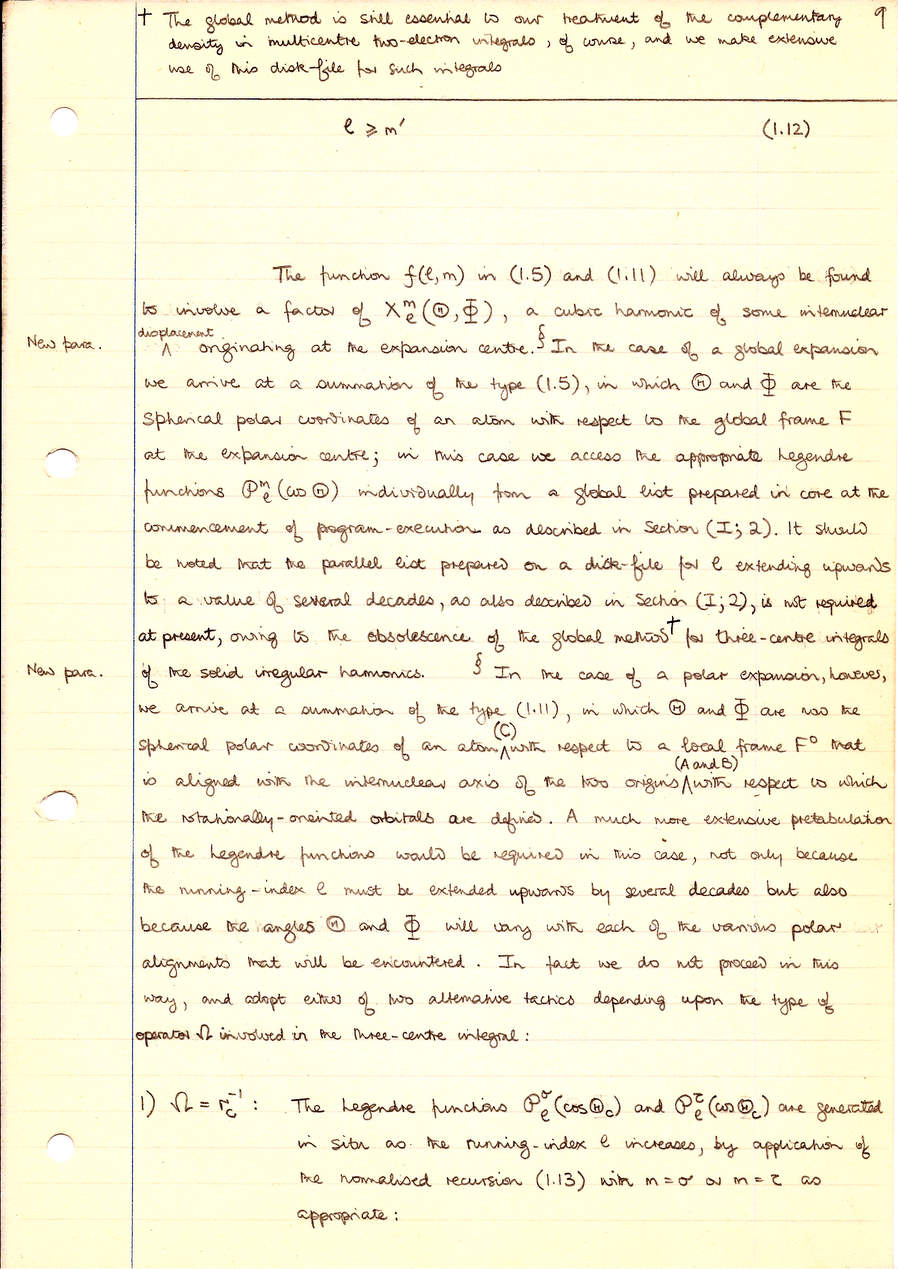 † The global method is still essential to our treatment of the complementary 9
density in multicentre two-electron integrals, of course, and we make extensive
use of this disk-file for such integrals
ℓ ⩾ m′ (1.12)
The function f(ℓ,m) in (1.5) and (1.11) will always be found
to involve a factor of X_ℓ^m(Θ,Φ), a cubic harmonic of some internuclear
displacement
New para. ∧ originating at the expansion centre. § In the case of a global expansion
we arrive at a summation of the type (1.5), in which Θ and Φ are the
spherical polar coordinates of an atom with respect to the global frame F
at the expansion centre; in this case we access the appropriate Legendre
functions P_ℓ^m(cos Θ) individually from a global list prepared in core at the
commencement of program-execution as described in Section (I; 2). It should
be noted that the parallel list prepared on a disk-file for ℓ extending upwards
to a value of several decades, as also described in Section (I; 2), is not required
at present, owing to the obsolescence of the global method† for three-centre integrals
New para. of the solid irregular harmonics. § In the case of a polar expansion, however,
we arrive at a summation of the type (1.11), in which Θ and Φ are now the
(C)
spherical polar coordinates of an atom ∧ with respect to a local frame F⁰ that
(A and B)
is aligned with the internuclear axis of the two origins ∧ with respect to which
the rotationally-oriented orbitals are defined. A much more extensive pretabulation
of the Legendre functions would be required in this case, not only because
the running-index ℓ must be extended upwards by several decades but also
because the angles Θ and Φ will vary with each of the various polar
alignments that will be encountered. In fact we do not proceed in this
way, and adopt either of two alternative tactics depending upon the type of
operator Ω involved in the three-centre integral:
1) Ω = r_c^{-1} : The Legendre functions P_ℓ^σ(cos Θ_c) and P_ℓ^τ(cos Θ_c) are generated
in situ as the running-index ℓ increases, by application of
the normalised recursion (1.13) with m = σ or m = τ as
appropriate: